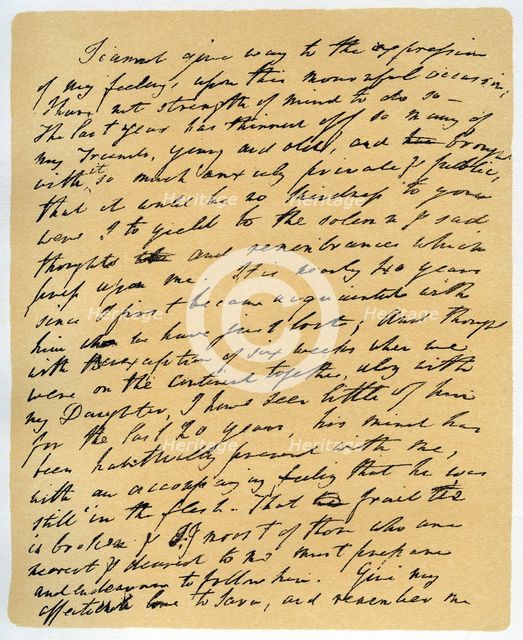 I cannot give way to the expression
of my feelings upon this mournful occasion;
I have not strength of mind to do so—
The last year has thinned off so many of
my Friends, young and old, and brought
with it so much anxiety private & public,
that it would be no kindness to you
were I to yield to the solemn & sad
thoughts and remembrances which
press upon me. It is nearly 40 years
since I first became acquainted with
him whom we have just lost; and though
with the exception of six weeks when we
were on the continent together, along with
my Daughter, I have seen little of him
for the last 20 years, his mind has
been habitually present with me,
with an accompanying feeling that he was
still in the flesh. That frail tie
is broken & I, & most of those who are
nearest & dearest to me must prepare
and endeavour to follow him. Give my
affectionate love to Sara, and remember me
Heritage
Heritage
Heritage
Heritage
Heritage
Heritage
©